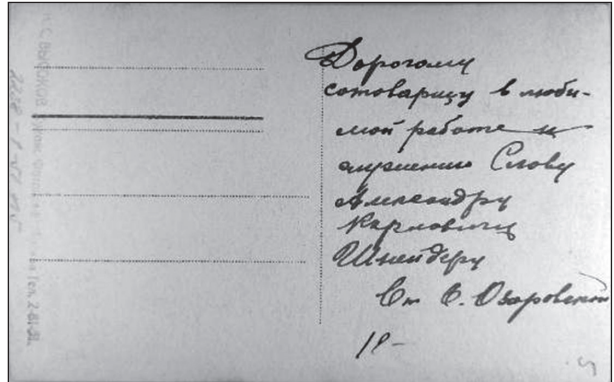 Дорогому
сотоварищу в люби-
мой работе и
служению Слову
Александру
Карловичу
Шнейдеру
От О. Озаровской
19-